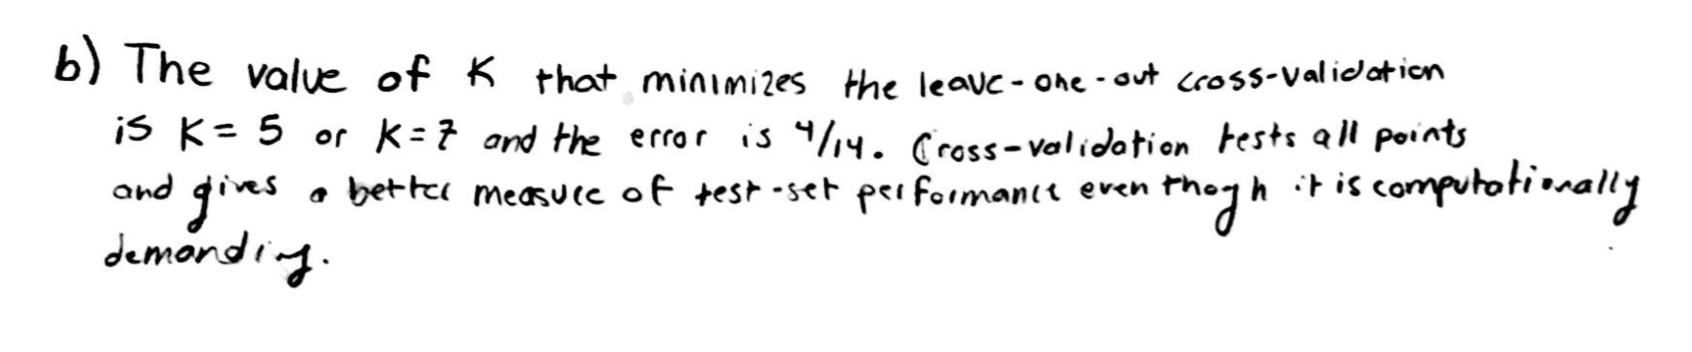 b) The value of K that minimizes the leave-one-out cross-validation
is K= 5 or K=7 and the error is 4/14. Cross-validation tests all points
and gives a better measure of test-set performance even thogh it is computationally
demanding.